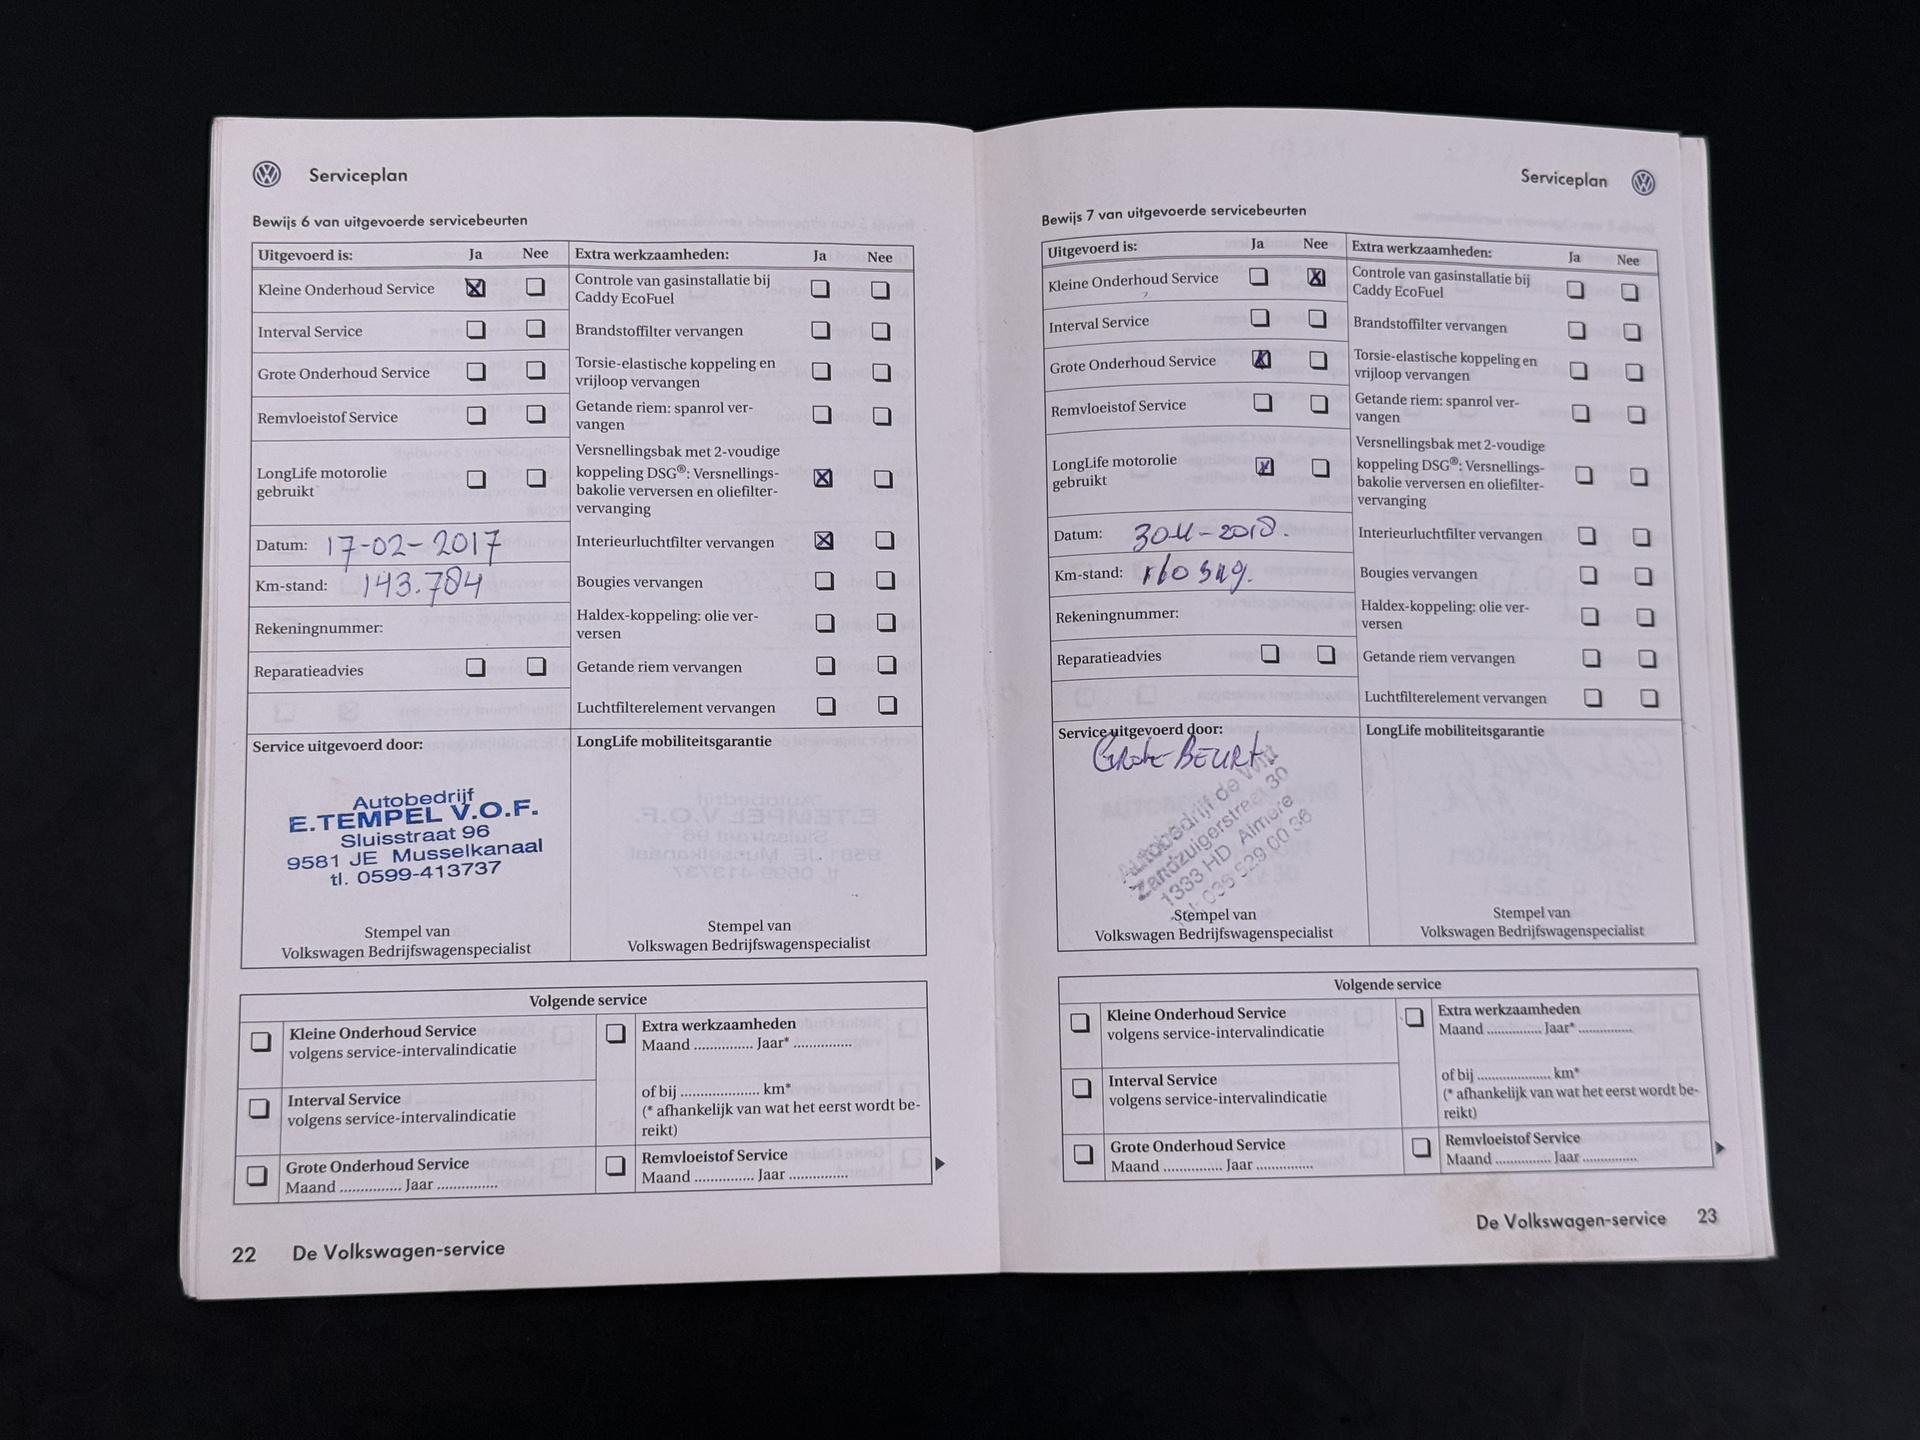 Serviceplan
Bewijs 6 van uitgevoerde servicebeurten
Uitgevoerd is: Ja Nee
Kleine Onderhoud Service
Interval Service
Grote Onderhoud Service
Remvloeistof Service
LongLife motorolie
gebruikt
Datum: 17-02-2017
Km-stand: 143.784
Rekeningnummer:
Reparatieadvies
Extra werkzaamheden: Ja Nee
Controle van gasinstallatie bij
Caddy EcoFuel
Brandstoffilter vervangen
Torsie-elastische koppeling en
vrijloop vervangen
Getande riem: spanrol ver-
vangen
Versnellingsbak met 2-voudige
koppeling DSG®: Versnellings-
bakolie verversen en oliefilter-
vervanging
Interieurluchtfilter vervangen
Bougies vervangen
Haldex-koppeling: olie ver-
versen
Getande riem vervangen
Luchtfilterelement vervangen
Service uitgevoerd door:
Autobedrijf
E.TEMPEL V.O.F.
Sluisstraat 96
9581 JE Musselkanaal
tl. 0599-413737
Stempel van
Volkswagen Bedrijfswagenspecialist
LongLife mobiliteitsgarantie
Stempel van
Volkswagen Bedrijfswagenspecialist
Volgende service
Kleine Onderhoud Service
volgens service-intervalindicatie
Interval Service
volgens service-intervalindicatie
Grote Onderhoud Service
Maand ............... Jaar ...............
Extra werkzaamheden
Maand ............... Jaar* ...............
of bij .................... km*
(* afhankelijk van wat het eerst wordt be-
reikt)
Remvloeistof Service
Maand ............... Jaar ...............
22 De Volkswagen-service
Serviceplan
Bewijs 7 van uitgevoerde servicebeurten
Uitgevoerd is: Ja Nee
Kleine Onderhoud Service
Interval Service
Grote Onderhoud Service
Remvloeistof Service
LongLife motorolie
gebruikt
Datum:
Km-stand:
Rekeningnummer:
Reparatieadvies
Extra werkzaamheden: Ja Nee
Controle van gasinstallatie bij
Caddy EcoFuel
Brandstoffilter vervangen
Torsie-elastische koppeling en
vrijloop vervangen
Getande riem: spanrol ver-
vangen
Versnellingsbak met 2-voudige
koppeling DSG®: Versnellings-
bakolie verversen en oliefilter-
vervanging
Interieurluchtfilter vervangen
Bougies vervangen
Haldex-koppeling: olie ver-
versen
Getande riem vervangen
Luchtfilterelement vervangen
Service uitgevoerd door:
Grote BEURT
Autobedrijf de Wit
Zandzuigerstraat 30
1333 HD Almere
036 529 00 36
Stempel van
Volkswagen Bedrijfswagenspecialist
LongLife mobiliteitsgarantie
Stempel van
Volkswagen Bedrijfswagenspecialist
Volgende service
Kleine Onderhoud Service
volgens service-intervalindicatie
Interval Service
volgens service-intervalindicatie
Grote Onderhoud Service
Maand ............... Jaar ...............
Extra werkzaamheden
Maand ............... Jaar* ...............
of bij .................... km*
(* afhankelijk van wat het eerst wordt be-
reikt)
Remvloeistof Service
Maand ............... Jaar ...............
De Volkswagen-service 23